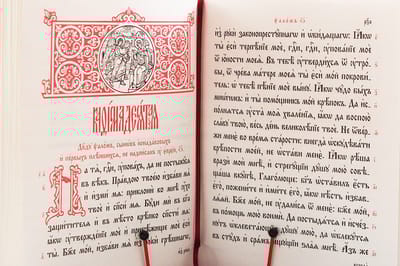 Каѳі́сма десѧ́таѧ
Дв҃ду ѱало́мъ, сынѡ́въ і҆ѡнада́вовыхъ
и҆ пе́рвыхъ плѣ́ншихсѧ, не надпи́санъ ᲂу҆ є҆врє́й, о҃.
На тѧ̀, гдⷭ҇и, ᲂу҆пова́хъ, да не постыжу́сѧ
въ вѣ́къ. Пра́вдою твое́ю и҆зба́ви мѧ̀
и҆ и҆зми́ мѧ: приклонѝ ко мнѣ̀ ᲂу҆́хо
твоѐ и҆ сп҃си́ мѧ. Бу́ди мѝ въ бг҃а
защи́тителѧ и҆ въ мѣ́сто крѣ́пко сп҃сти́ мѧ:
ꙗ҆́кѡ ᲂу҆твержде́нїе моѐ и҆ прибѣ́жище моѐ є҆сѝ
ты̀. Бж҃е мо́й, и҆зба́ви мѧ̀ и҆з̾ рукѝ грѣ́шнагѡ,
ѱало́мъ о҃
и҆з̾ рукѝ законопрестꙋ́пнагѡ и҆ ѡ҆би́дѧщагѡ. Ꙗ҆́кѡ
ты̀ є҆сѝ терпѣ́нїе моѐ, гдⷭ҇и, гдⷭ҇и, ᲂу҆пова́нїе моѐ
ѿ ю҆́ности моеѧ̀. Въ тебѣ̀ ᲂу҆тверди́хсѧ ѿ ᲂу҆тро́-
бы, ѿ чре́ва ма́тере моеѧ̀ ты̀ є҆сѝ мо́й покрови́-
тель. Ѡ҆ тебѣ̀ пѣ́нїе моѐ вы́нꙋ. Ꙗ҆́кѡ чꙋ́до бы́хъ
мнѡ́гимъ: и҆ ты̀ помо́щникъ мо́й крѣ́покъ. Да и҆с-
по́лнѧтсѧ ᲂу҆ста̀ моѧ̀ хвале́нїѧ, ꙗ҆́кѡ да воспою̀
сла́вꙋ твою̀, ве́сь де́нь великолѣ́пїе твоѐ. Не ѿве́р-
жи менѐ во вре́мѧ ста́рости: внегда̀ ѡ҆скꙋдѣва́ти
крѣ́пости мое́й, не ѡ҆ста́ви менѐ. Ꙗ҆́кѡ рѣ́ша
вразѝ моѝ мнѣ̀, и҆ стрегꙋ́щїи дꙋ́шꙋ мою̀ совѣ-
ща́ша вкꙋ́пѣ. Глаго́люще: бг҃ъ ѡ҆ста́вилъ є҆́сть
є҆го̀, пожени́те и҆ и҆ми́те є҆го̀, ꙗ҆́кѡ нѣ́сть и҆збавлѧ́-
ѧй. Бж҃е мо́й, не ᲂу҆дали́сѧ ѿ менѐ: бж҃е мо́й,
въ по́мощь мою̀ вонмѝ. Да постыдѧ́тсѧ и҆ и҆сче́з-
нꙋтъ ѡ҆клевета́ющїи дꙋ́шꙋ мою̀, да ѡ҆блекꙋ́тсѧ
въ стꙋ́дъ и҆ сра́мъ и҆́щꙋщїи ѕла̑ѧ мнѣ̀. А҆́зъ же